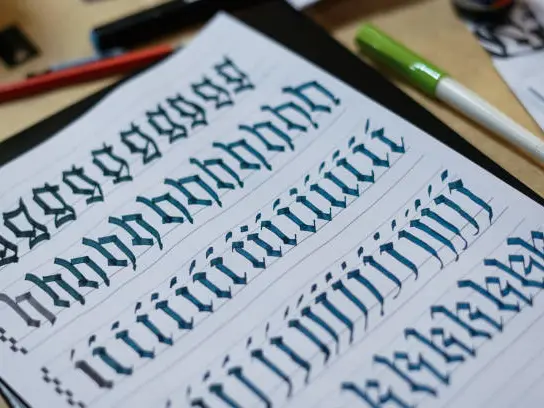 gggggggggg
hhhhhhhhhhhh
iiiiiiiiiiiiiii
jjjjjjjjjjjjj
kkkkkkk